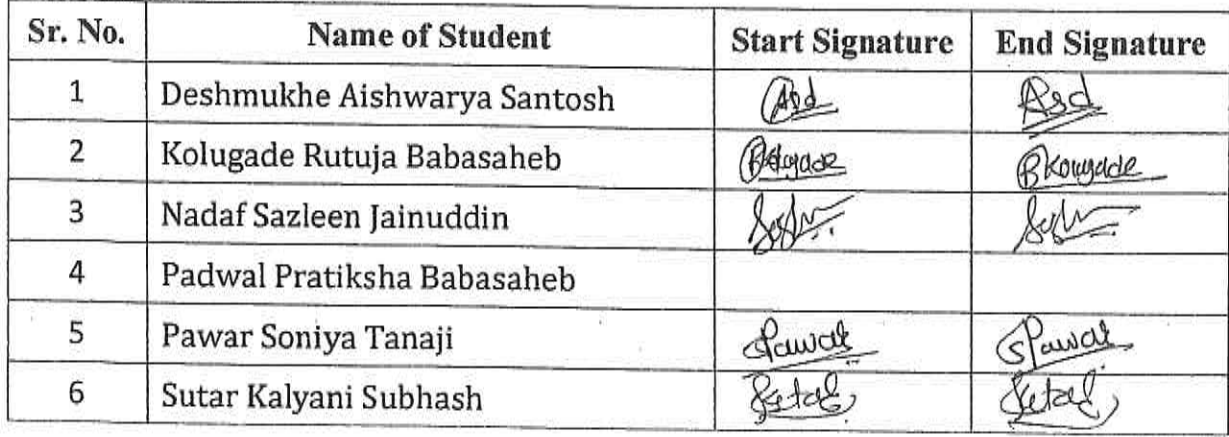 Sr. No. Name of Student Start Signature End Signature
1 Deshmukhe Aishwarya Santosh Asd Asd
2 Kolugade Rutuja Babasaheb
3 Nadaf Sazleen Jainuddin
4 Padwal Pratiksha Babasaheb
5 Pawar Soniya Tanaji SPawar SPawar
6 Sutar Kalyani Subhash